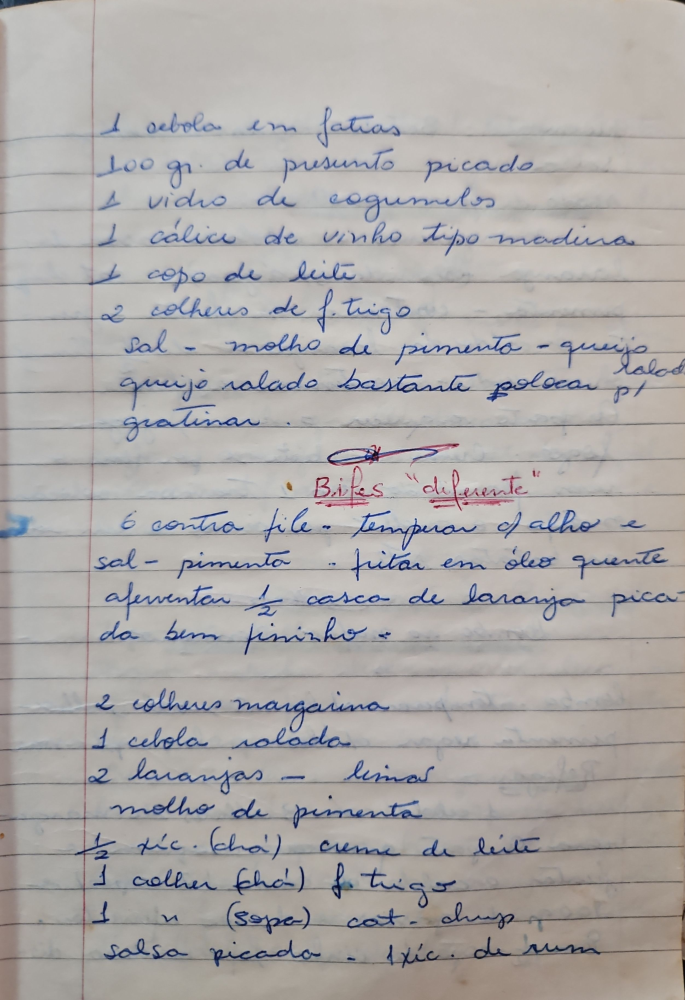 1 cebola em fatias
100 gr. de presunto picado
1 vidro de cogumelos
1 cálice de vinho tipo madeira
1 copo de leite
2 colheres de f. trigo
sal - molho de pimenta - queijo ralado
queijo ralado bastante polocar p/
gratinar.
Bifes "diferente"
6 contra file - temperar c/ alho e
sal - pimenta - fritar em óleo quente
aferventar 1/2 casca de laranja pica-
da bem fininho -
2 colheres margarina
1 cebola ralada
2 laranjas -
molho de pimenta
1/2 xíc. (chá) creme de leite
1 colher (chá) f. trigo
1 " (sopa) cat-chup
salsa picada - 1 xíc. de rum